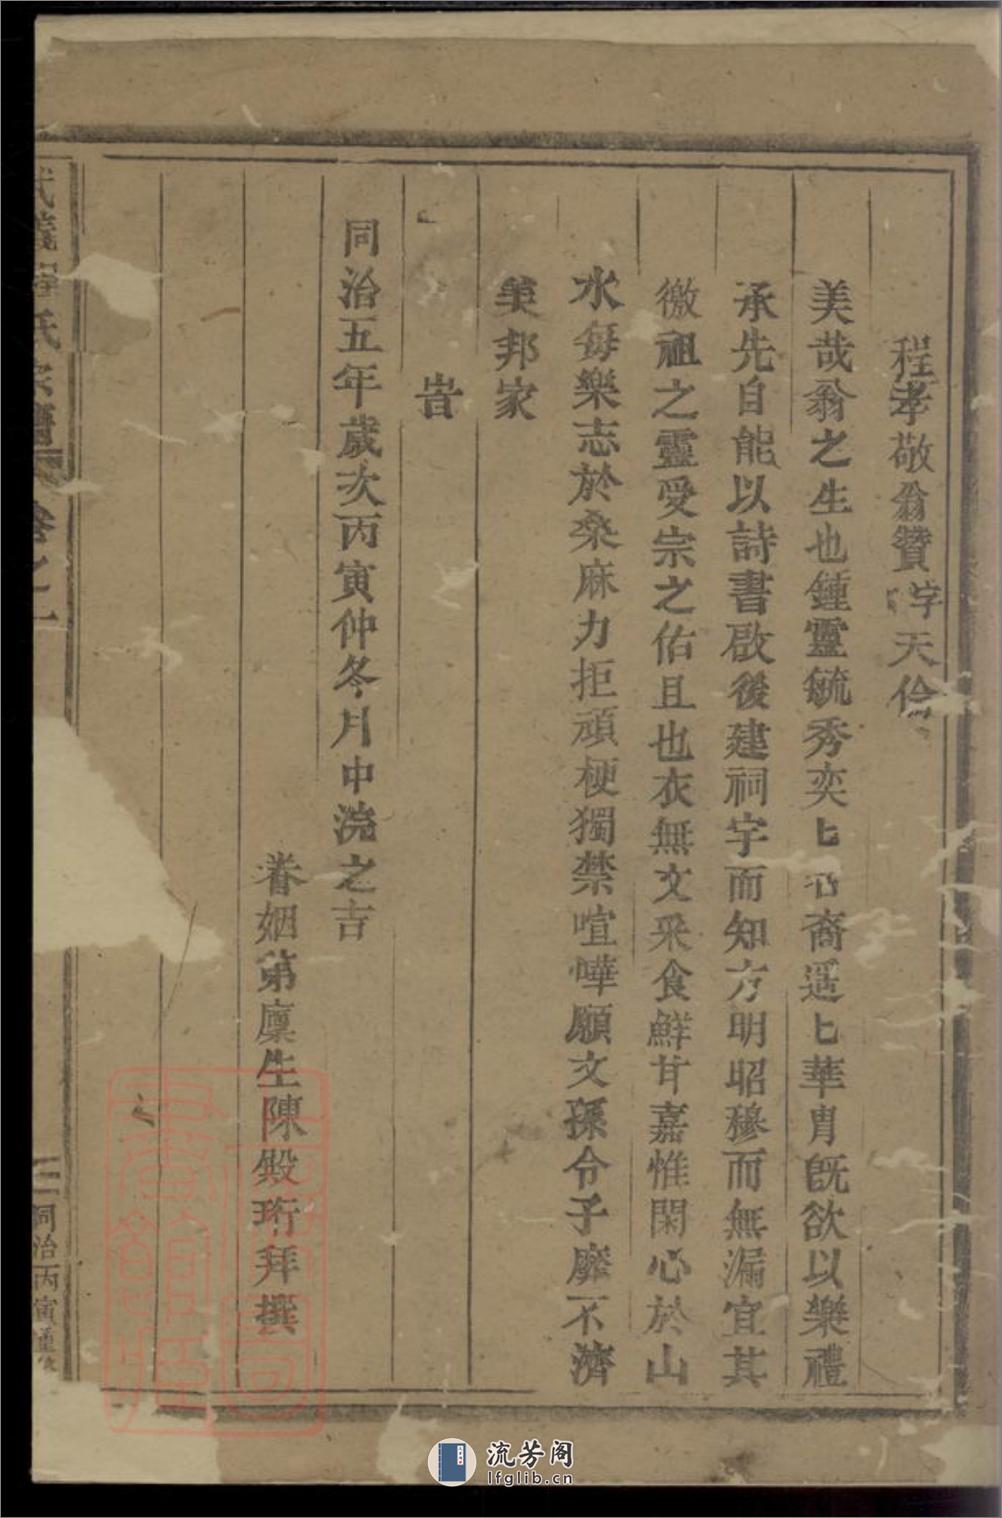 程孝敬翁贊字天倫
美哉翁之生也鍾靈毓秀奕匕名裔遥匕華胄旣欲以樂禮
承先自能以詩書啟後建祠宇而知方明昭穆而無漏宜其
徼祖之靈受宗之佑且也衣無文采食鮮甘嘉惟閑心於山
水每樂志於桑麻力拒頑梗獨禁喧嘩願文孫令子靡不濟
美邦家
旹
同治五年歲次丙寅仲冬月中浣之吉
眷姻第廩生陳殿珩拜撰
氏宗譜
卷之一
同治丙寅
流芳阁
lfglib.cn